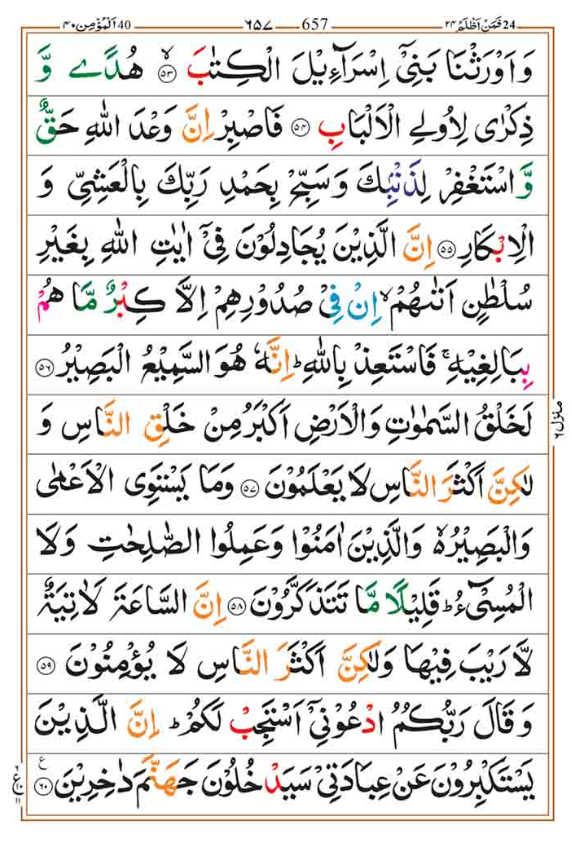 المؤمن ٤٠ 40 ٦٥٧ 657 فمن اظلم ٢٤ 24
وَ اَوْرَثْنَا بَنِیْۤ اِسْرَآءِیْلَ الْكِتٰبَ ۙ‏﴿۵۳﴾ هُدًی وَّ
ذِكْرٰی لِاُولِی الْاَلْبَابِ ﴿۵۴﴾ فَاصْبِرْ اِنَّ وَعْدَ اللّٰهِ حَقٌّ
وَّ اسْتَغْفِرْ لِذَنْۢبِكَ وَ سَبِّحْ بِحَمْدِ رَبِّكَ بِالْعَشِیِّ وَ
الْاِبْكَارِ ﴿۵۵﴾ اِنَّ الَّذِیْنَ یُجَادِلُوْنَ فِیْۤ اٰیٰتِ اللّٰهِ بِغَیْرِ
سُلْطٰنٍ اَتٰىهُمْ ۙ اِنْ فِیْ صُدُوْرِهِمْ اِلَّا كِبْرٌ مَّا هُمْ
بِبَالِغِیْهِ ۚ فَاسْتَعِذْ بِاللّٰهِ ؕ اِنَّهٗ هُوَ السَّمِیْعُ الْبَصِیْرُ ﴿۵۶﴾
لَخَلْقُ السَّمٰوٰتِ وَ الْاَرْضِ اَكْبَرُ مِنْ خَلْقِ النَّاسِ وَ
لٰكِنَّ اَكْثَرَ النَّاسِ لَا یَعْلَمُوْنَ ﴿۵۷﴾ وَ مَا یَسْتَوِی الْاَعْمٰی
وَ الْبَصِیْرُ ۙ۬ وَ الَّذِیْنَ اٰمَنُوْا وَ عَمِلُوا الصّٰلِحٰتِ وَ لَا
الْمُسِیْٓءُ ؕ قَلِیْلًا مَّا تَتَذَكَّرُوْنَ ﴿۵۸﴾ اِنَّ السَّاعَةَ لَاٰتِیَةٌ
لَّا رَیْبَ فِیْهَا وَ لٰكِنَّ اَكْثَرَ النَّاسِ لَا یُؤْمِنُوْنَ ﴿۵۹﴾
وَ قَالَ رَبُّكُمُ ادْعُوْنِیْۤ اَسْتَجِبْ لَكُمْ ؕ اِنَّ الَّذِیْنَ
یَسْتَكْبِرُوْنَ عَنْ عِبَادَتِیْ سَیَدْخُلُوْنَ جَهَنَّمَ دٰخِرِیْنَ ﴿۶۰﴾ ع
منزل ٦